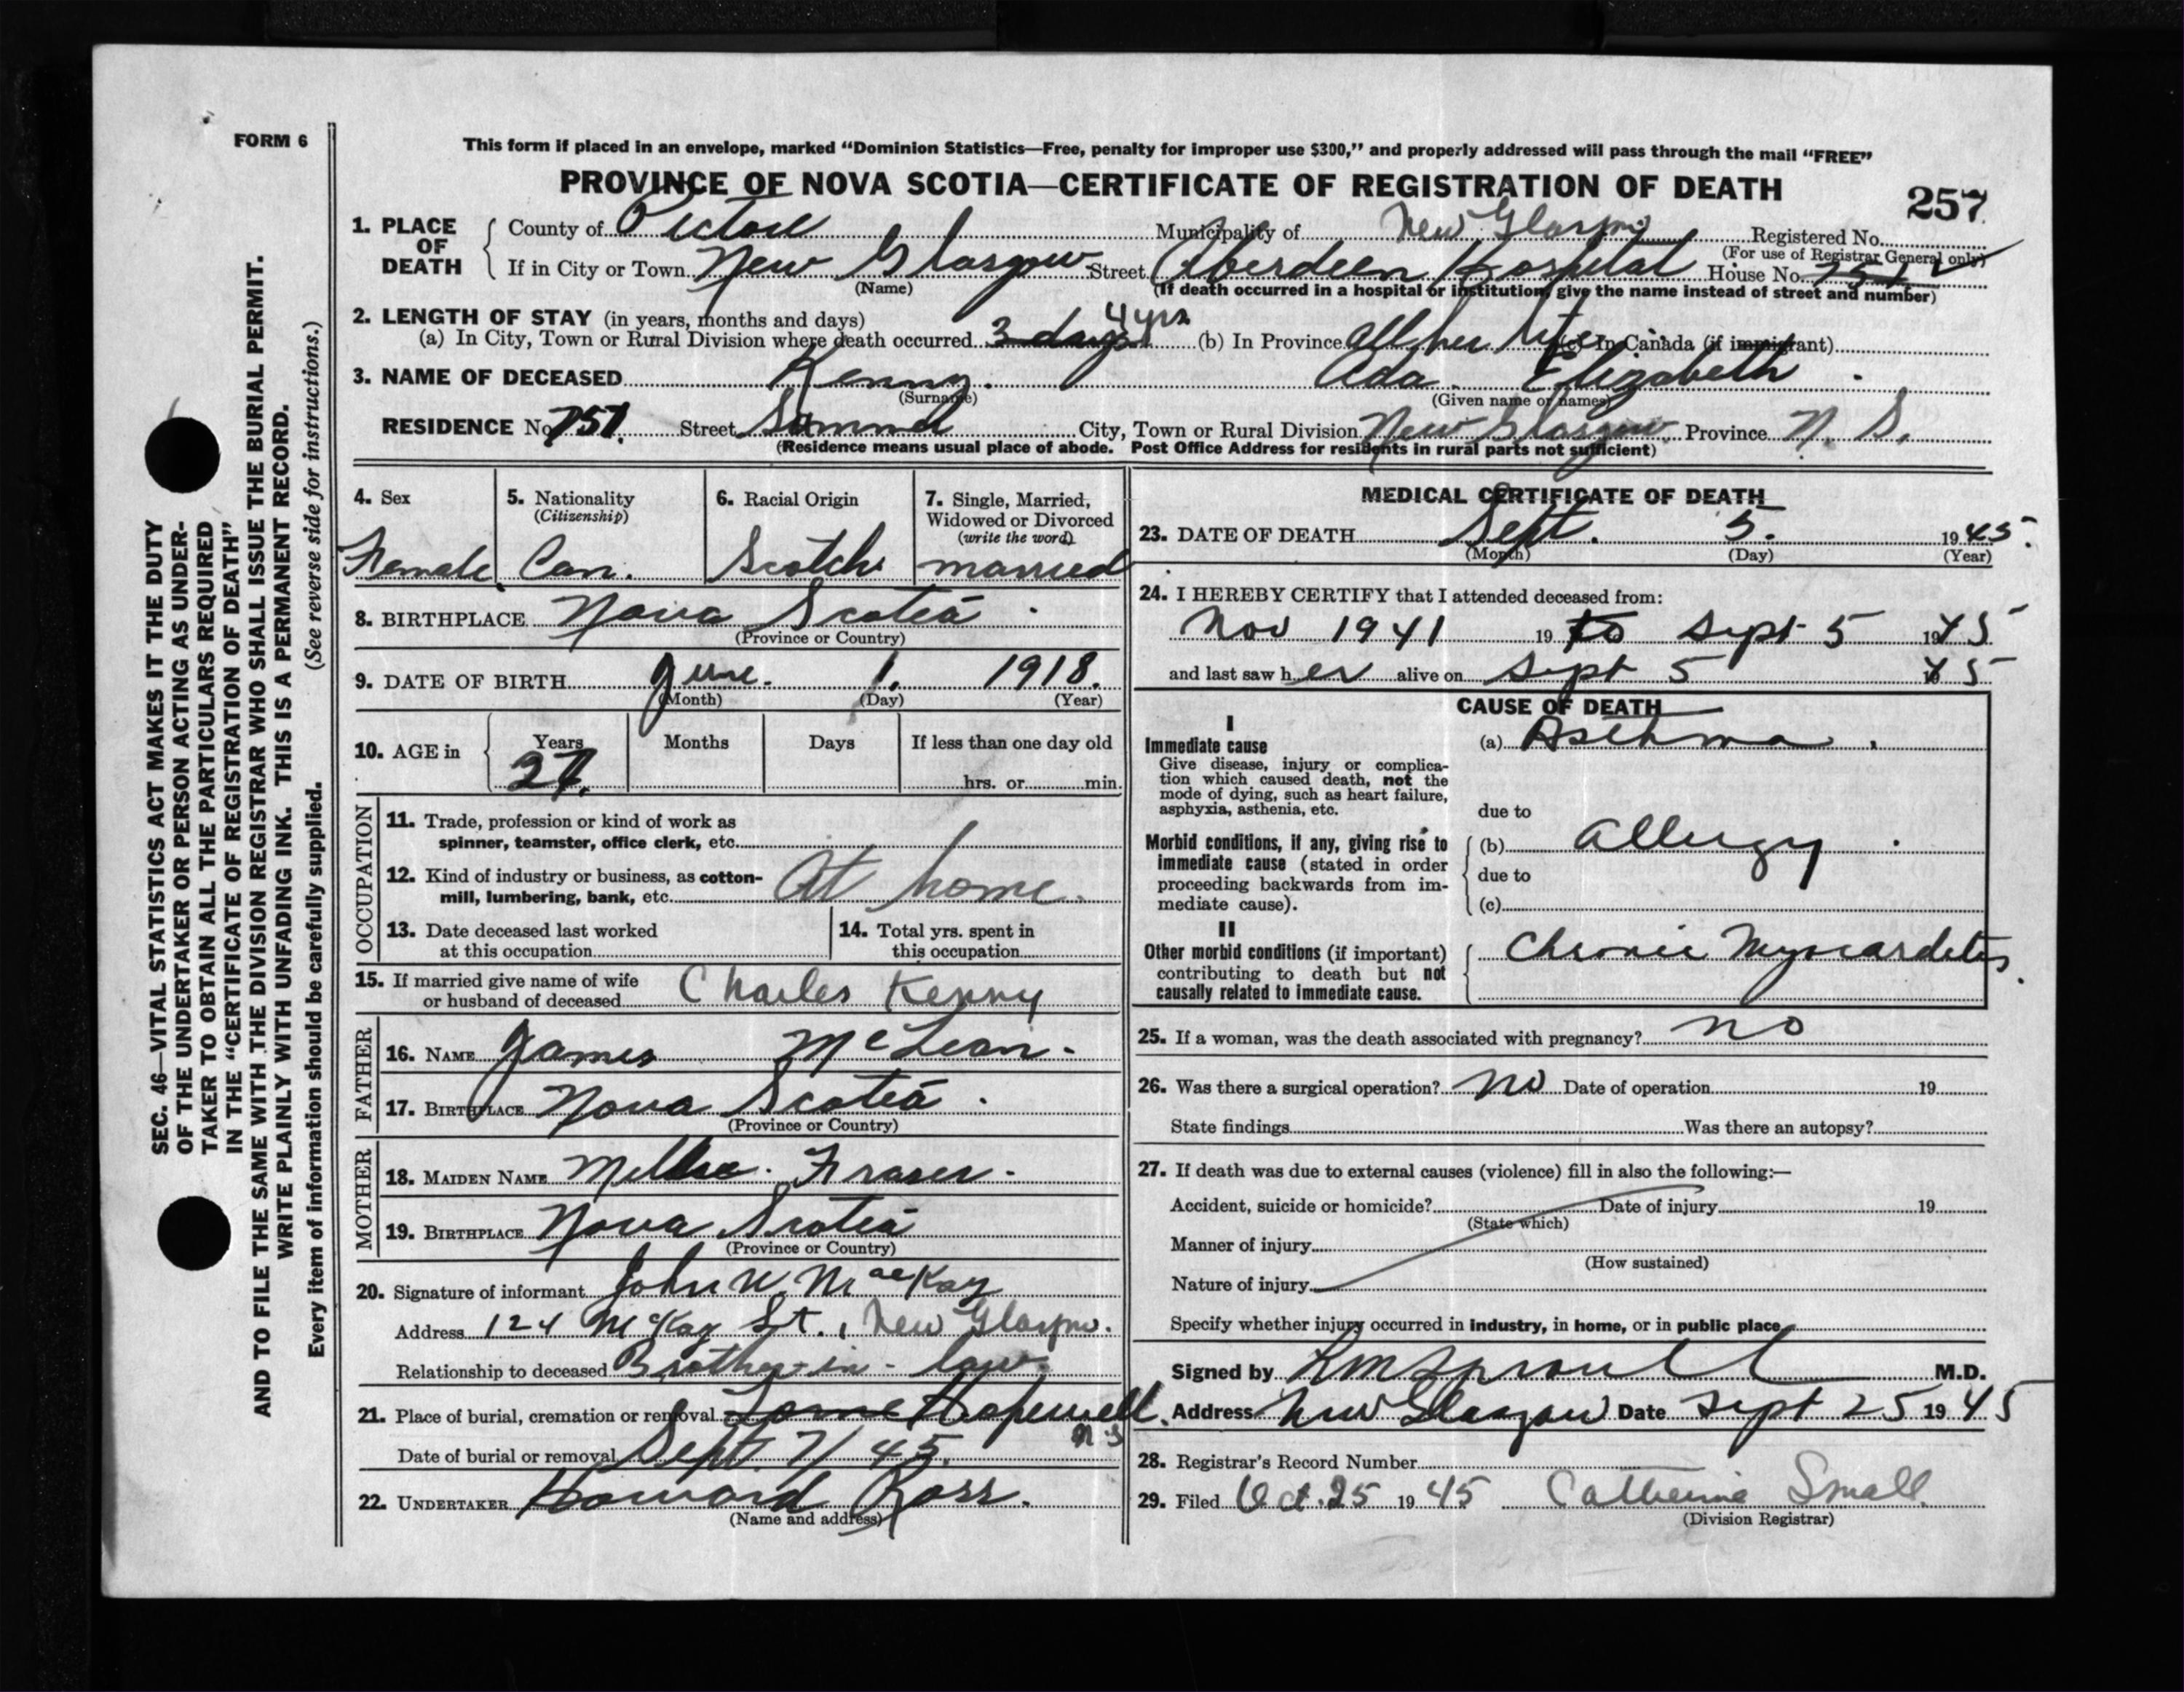 FORM 6
This form if placed in an envelope, marked “Dominion Statistics—Free, penalty for improper use $300,” and properly addressed will pass through the mail “FREE”
PROVINCE OF NOVA SCOTIA—CERTIFICATE OF REGISTRATION OF DEATH
257
1. PLACE OF DEATH
County of Pictou Municipality of New Glasgow Registered No.
(For use of Registrar General only)
If in City or Town New Glasgow Street Aberdeen Hospital House No.
(Name) (If death occurred in a hospital or institution, give the name instead of street and number)
2. LENGTH OF STAY (in years, months and days)
(a) In City, Town or Rural Division where death occurred 3 days 4 yrs (b) In Province All her life (c) In Canada (if immigrant)
3. NAME OF DECEASED Kenny. Ada. Elizabeth
(Surname) (Given name or names)
RESIDENCE No. 751. Street City, Town or Rural Division New Glasgow. Province N. S.
(Residence means usual place of abode. Post Office Address for residents in rural parts not sufficient)
4. Sex
Female
5. Nationality
(Citizenship)
Can.
6. Racial Origin
Scotch
7. Single, Married,
Widowed or Divorced
(write the word)
married
8. BIRTHPLACE Nova Scotia
(Province or Country)
9. DATE OF BIRTH June. 1. 1918.
(Month) (Day) (Year)
10. AGE in Years Months Days If less than one day old
27. hrs. or min.
OCCUPATION
11. Trade, profession or kind of work as
spinner, teamster, office clerk, etc.
12. Kind of industry or business, as cotton-
mill, lumbering, bank, etc. At home.
13. Date deceased last worked
at this occupation
14. Total yrs. spent in
this occupation
15. If married give name of wife
or husband of deceased Charles Kenny
FATHER
16. NAME James McLean.
17. BIRTHPLACE Nova Scotia.
(Province or Country)
MOTHER
18. MAIDEN NAME Fraser.
19. BIRTHPLACE Nova Scotia
(Province or Country)
20. Signature of informant John W. MacKay
Address 124 McKay St., New Glasgow.
Relationship to deceased Brother-in-law.
21. Place of burial, cremation or removal Lorne Hopewell. N.S
Date of burial or removal Sept. 7/45.
22. UNDERTAKER Howard Ross.
(Name and address)
MEDICAL CERTIFICATE OF DEATH
23. DATE OF DEATH Sept. 5. 1945.
(Month) (Day) (Year)
24. I HEREBY CERTIFY that I attended deceased from:
Nov 1941 19 to Sept 5 1945
and last saw her alive on Sept 5 1945
CAUSE OF DEATH
I
Immediate cause
Give disease, injury or complica-
tion which caused death, not the
mode of dying, such as heart failure,
asphyxia, asthenia, etc.
(a) Asthma.
due to
Morbid conditions, if any, giving rise to
immediate cause (stated in order
proceeding backwards from im-
mediate cause).
(b) Allergy.
due to
(c)
II
Other morbid conditions (if important)
contributing to death but not
causally related to immediate cause.
Chronic Myocarditis.
25. If a woman, was the death associated with pregnancy? no
26. Was there a surgical operation? No Date of operation 19
State findings Was there an autopsy?
27. If death was due to external causes (violence) fill in also the following:—
Accident, suicide or homicide? Date of injury 19
(State which)
Manner of injury
(How sustained)
Nature of injury
Specify whether injury occurred in industry, in home, or in public place
Signed by M.D.
Address New Glasgow Date Sept 25 1945
28. Registrar's Record Number
29. Filed Oct. 25 1945 Catherine Small
(Division Registrar)
SEC. 46—VITAL STATISTICS ACT MAKES IT THE DUTY
OF THE UNDERTAKER OR PERSON ACTING AS UNDER-
TAKER TO OBTAIN ALL THE PARTICULARS REQUIRED
IN THE “CERTIFICATE OF REGISTRATION OF DEATH”
AND TO FILE THE SAME WITH THE DIVISION REGISTRAR WHO SHALL ISSUE THE BURIAL PERMIT.
WRITE PLAINLY WITH UNFADING INK. THIS IS A PERMANENT RECORD.
Every item of information should be carefully supplied. (See reverse side for instructions.)